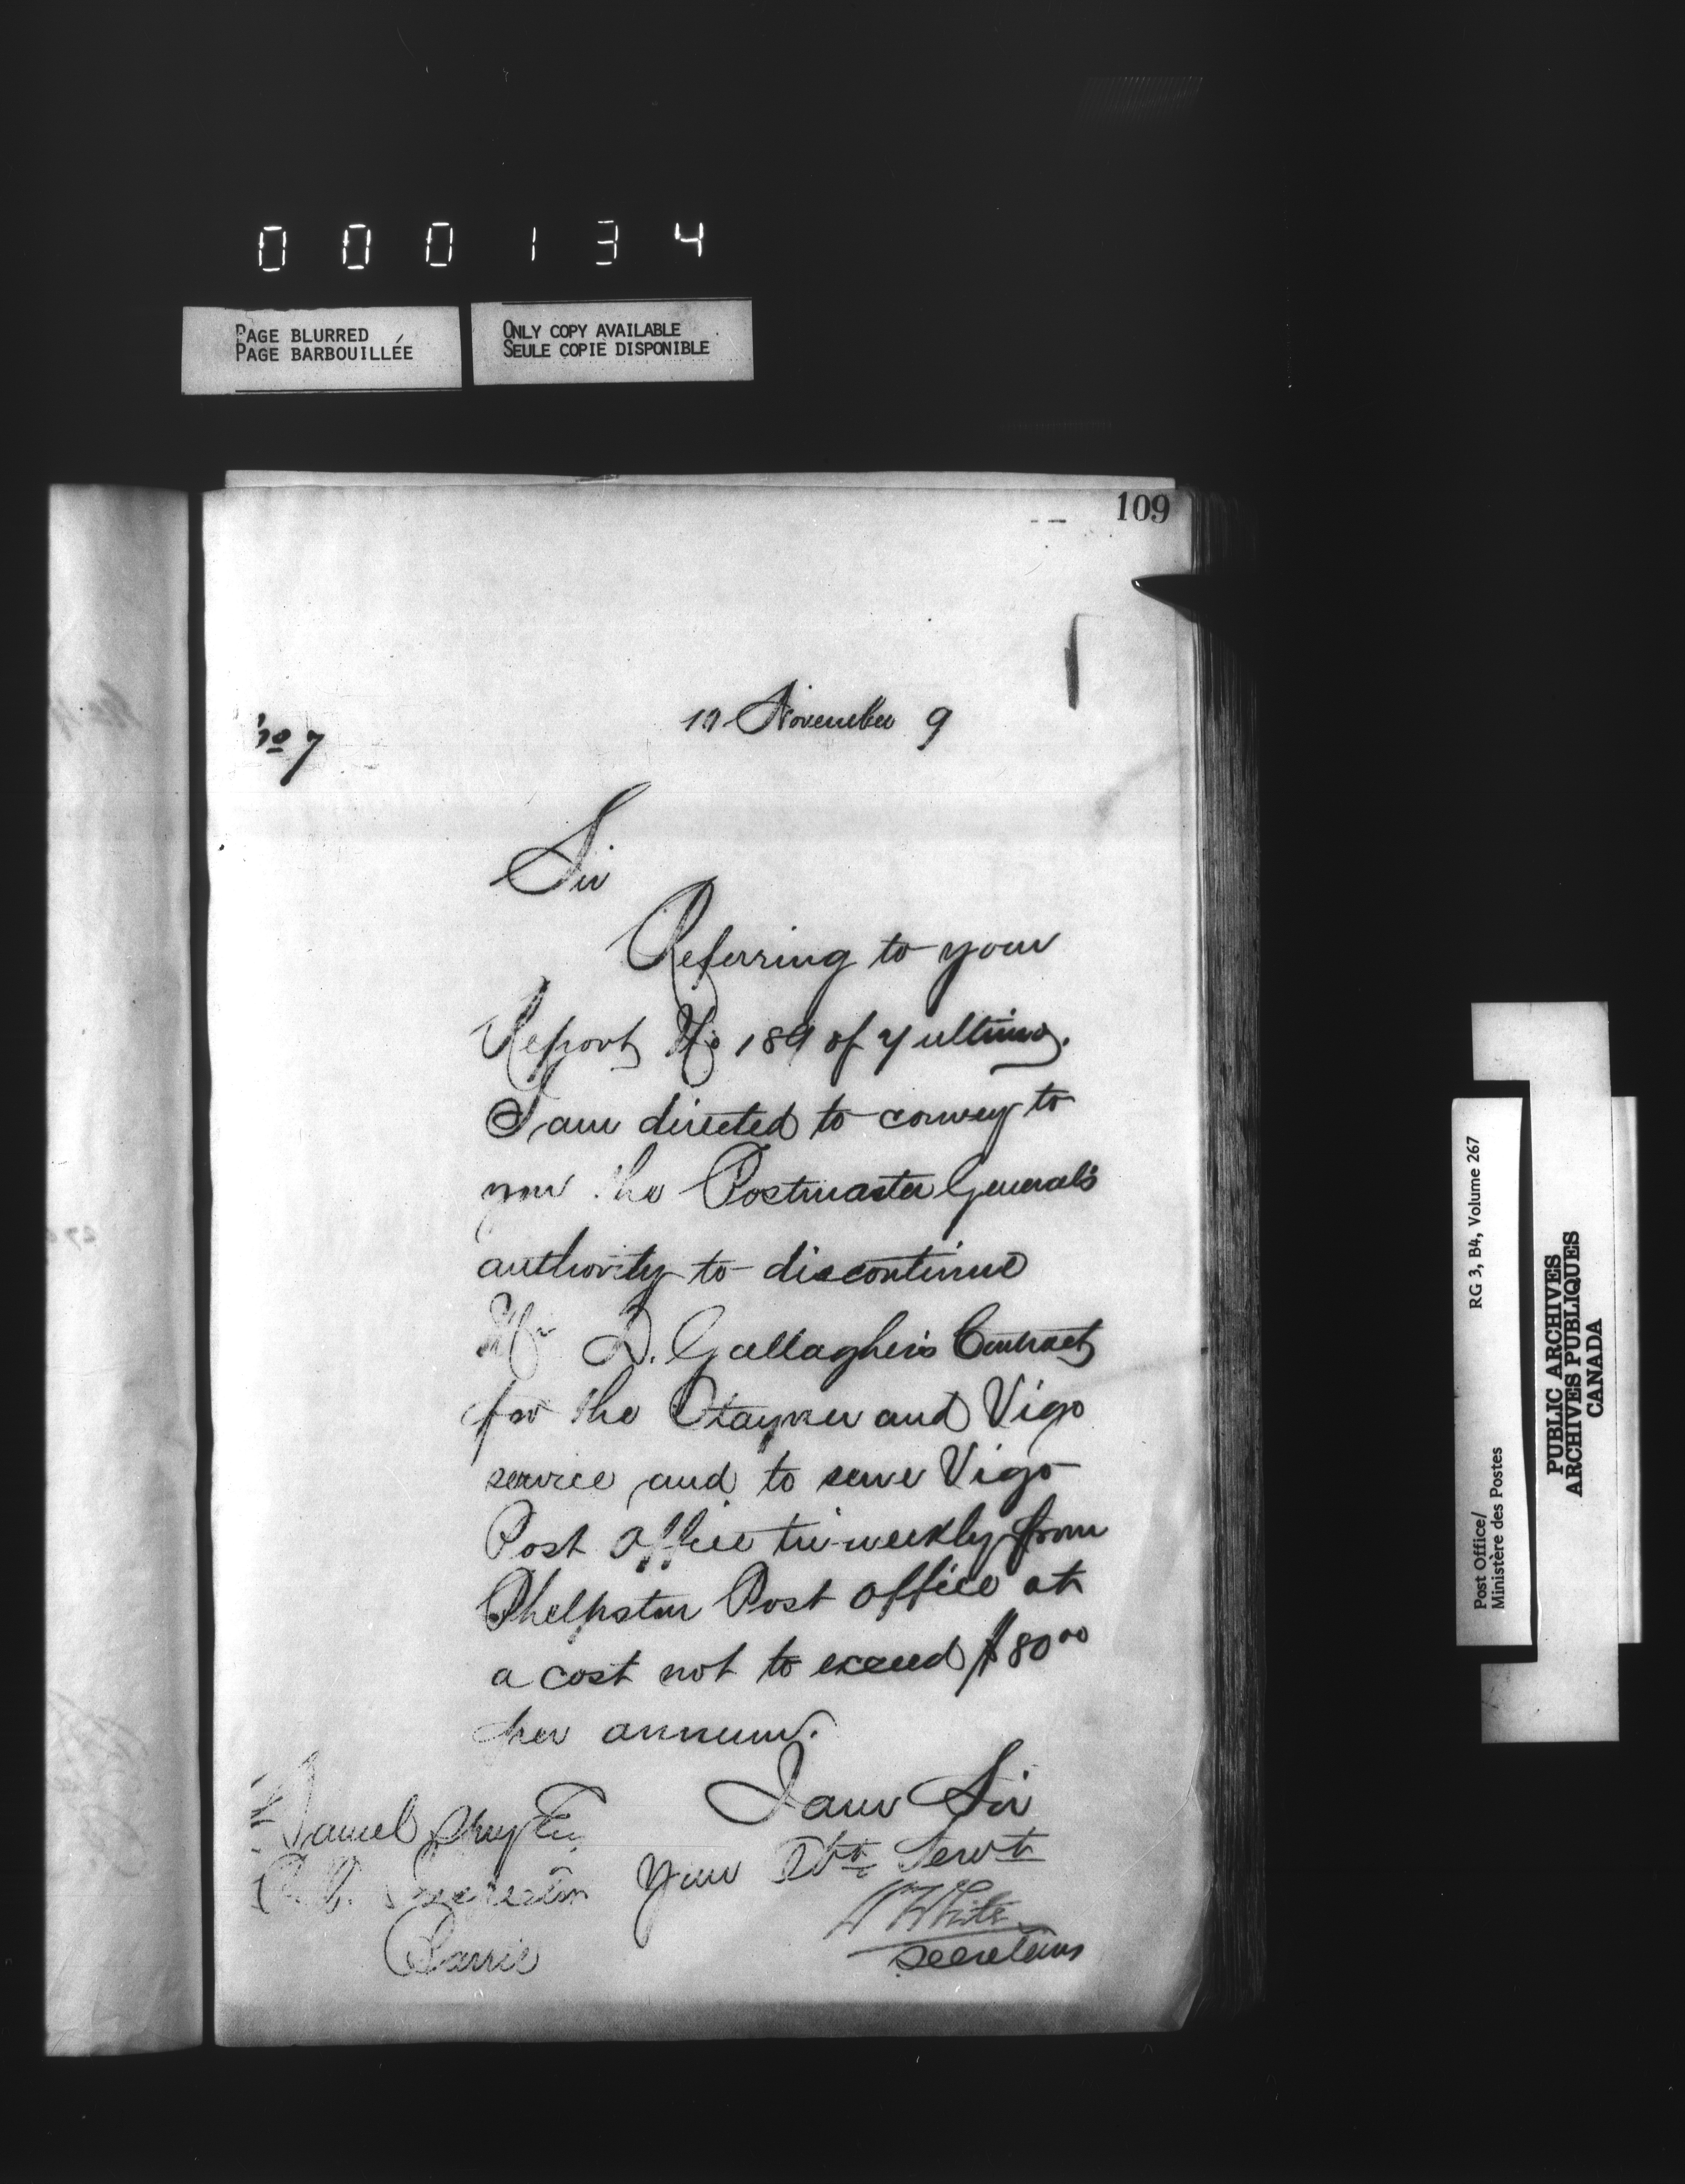 000134
PAGE BLURRED
PAGE BARBOUILLÉE
ONLY COPY AVAILABLE
SEULE COPIE DISPONIBLE
109
No 7
November 9
Sir
Referring to your
Report No 189 of 7 ultimo.
I am directed to convey to
you the Postmaster General's
authority to discontinue
Mr D. Gallagher's Contract
for the and Vigo
service and to serve Vigo
Post Office tri-weekly from
Phelpston Post Office at
a cost not to exceed $80 00
per annum.
I am Sir
Your Obt Servt
White
Secretary
Daniel
P. O. Inspector
Barrie
Post Office/ RG 3, B4, Volume 267
Ministère des Postes
PUBLIC ARCHIVES
ARCHIVES PUBLIQUES
CANADA